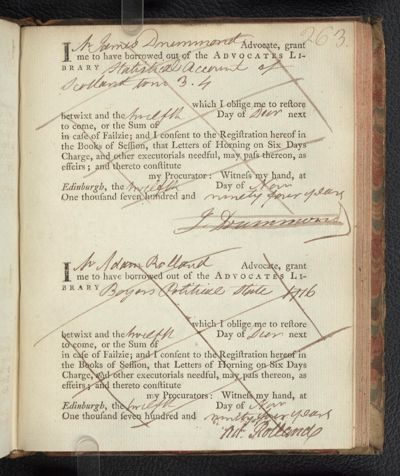 263.
I Mr James Drummond Advocate, grant
me to have borrowed out of the ADVOCATES LI-
BRARY Statistical Account of
Scotland tom 3. 4
which I oblige me to restore
betwixt and the twelfth Day of Decr next
to come, or the Sum of
in case of Failzie; and I consent to the Registration hereof in
the Books of Session, that Letters of Horning on Six Days
Charge, and other executorials needful, may pass thereon, as
effeirs; and thereto constitute
my Procurator: Witness my hand, at
Edinburgh, the twelfth Day of Novr
One thousand seven hundred and ninety four years
J. Drummond
I Mr Adam Rolland Advocate, grant
me to have borrowed out of the ADVOCATES LI-
BRARY Boyers Political State 1716
which I oblige me to restore
betwixt and the twelfth Day of Decr next
to come, or the Sum of
in case of Failzie; and I consent to the Registration hereof in
the Books of Session, that Letters of Horning on Six Days
Charge, and other executorials needful, may pass thereon, as
effeirs; and thereto constitute
my Procurators: Witness my hand, at
Edinburgh, the twelfth Day of Novr
One thousand seven hundred and ninety four years
Ad. Rolland